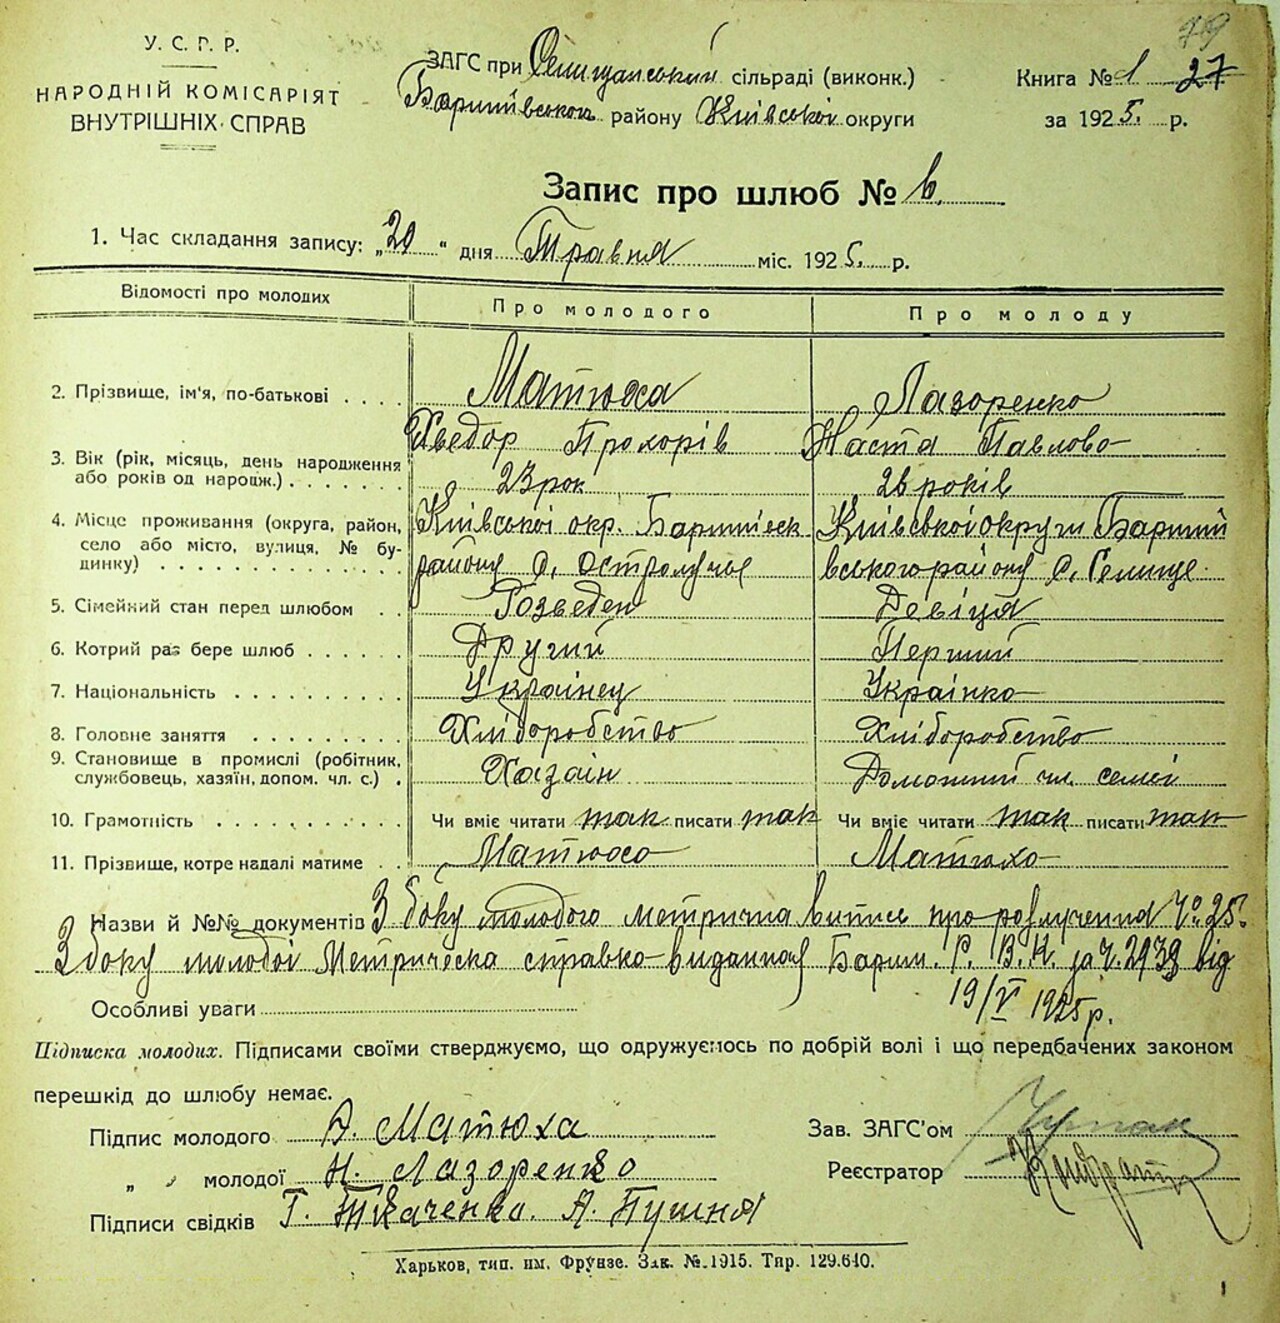 79
У. С. Р. Р.
НАРОДНІЙ КОМІСАРІЯТ
ВНУТРІШНІХ СПРАВ
ЗАГС при Селищанській сільраді (виконк.)
Баришівського району Київської округи
Книга № 1 27
за 1925. р.
Запис про шлюб № 6.
1. Час складання запису: „20" дня Травня міс. 1925. р.
Відомості про молодих Про молодого Про молоду
2. Прізвище, ім'я, по-батькові . . . . Матюха Лазоренко
Хведор Прохорів Наста Павлово
3. Вік (рік, місяць, день народження
або років од народж.) . . . . . . . 23 рок 26 років
4. Місце проживання (округа, район, Київської окр. Баришівськ Київської округи Бариші
село або місто, вулиця, № бу-
динку) . . . . . . . . . . . . . району с. Остролуччя вського району с. Селище
5. Сімейний стан перед шлюбом . . Розведен Девіця
6. Котрий раз бере шлюб . . . . . . Другий Перший
7. Національність . . . . . . . . . Українец Українко
8. Головне заняття . . . . . . . . . Хліборобство Хліборобство
9. Становище в промислі (робітник,
службовець, хазяїн, допом. чл. с.) . Хазаін Доможний чл. семеі
10. Грамотність . . . . . . . . . . Чи вміє читати так писати так Чи вміє читати так писати так
11. Прізвище, котре надалі матиме . . Матюхо Матюхо
Назви й №№ документів З боку молодого метрична витись про розлучення Ч° 25.
З боку молодої Метрическа справко виданная Бариш. Р. В. К. за Ч. 2939 від
19/V 1925 р.
Особливі уваги
Підписка молодих. Підписами своїми стверджуємо, що одружуємось по добрій волі і що передбачених законом
перешкід до шлюбу немає.
Підпис молодого Матюха
„ „ молодої Н. Лазоренко
Підписи свідків Г. Ткаченко. А. Пушня
Зав. ЗАГС'ом
Реєстратор
Харьков, тип. им. Фрунзе. Зак. №.1915. Тир. 129.640.
1